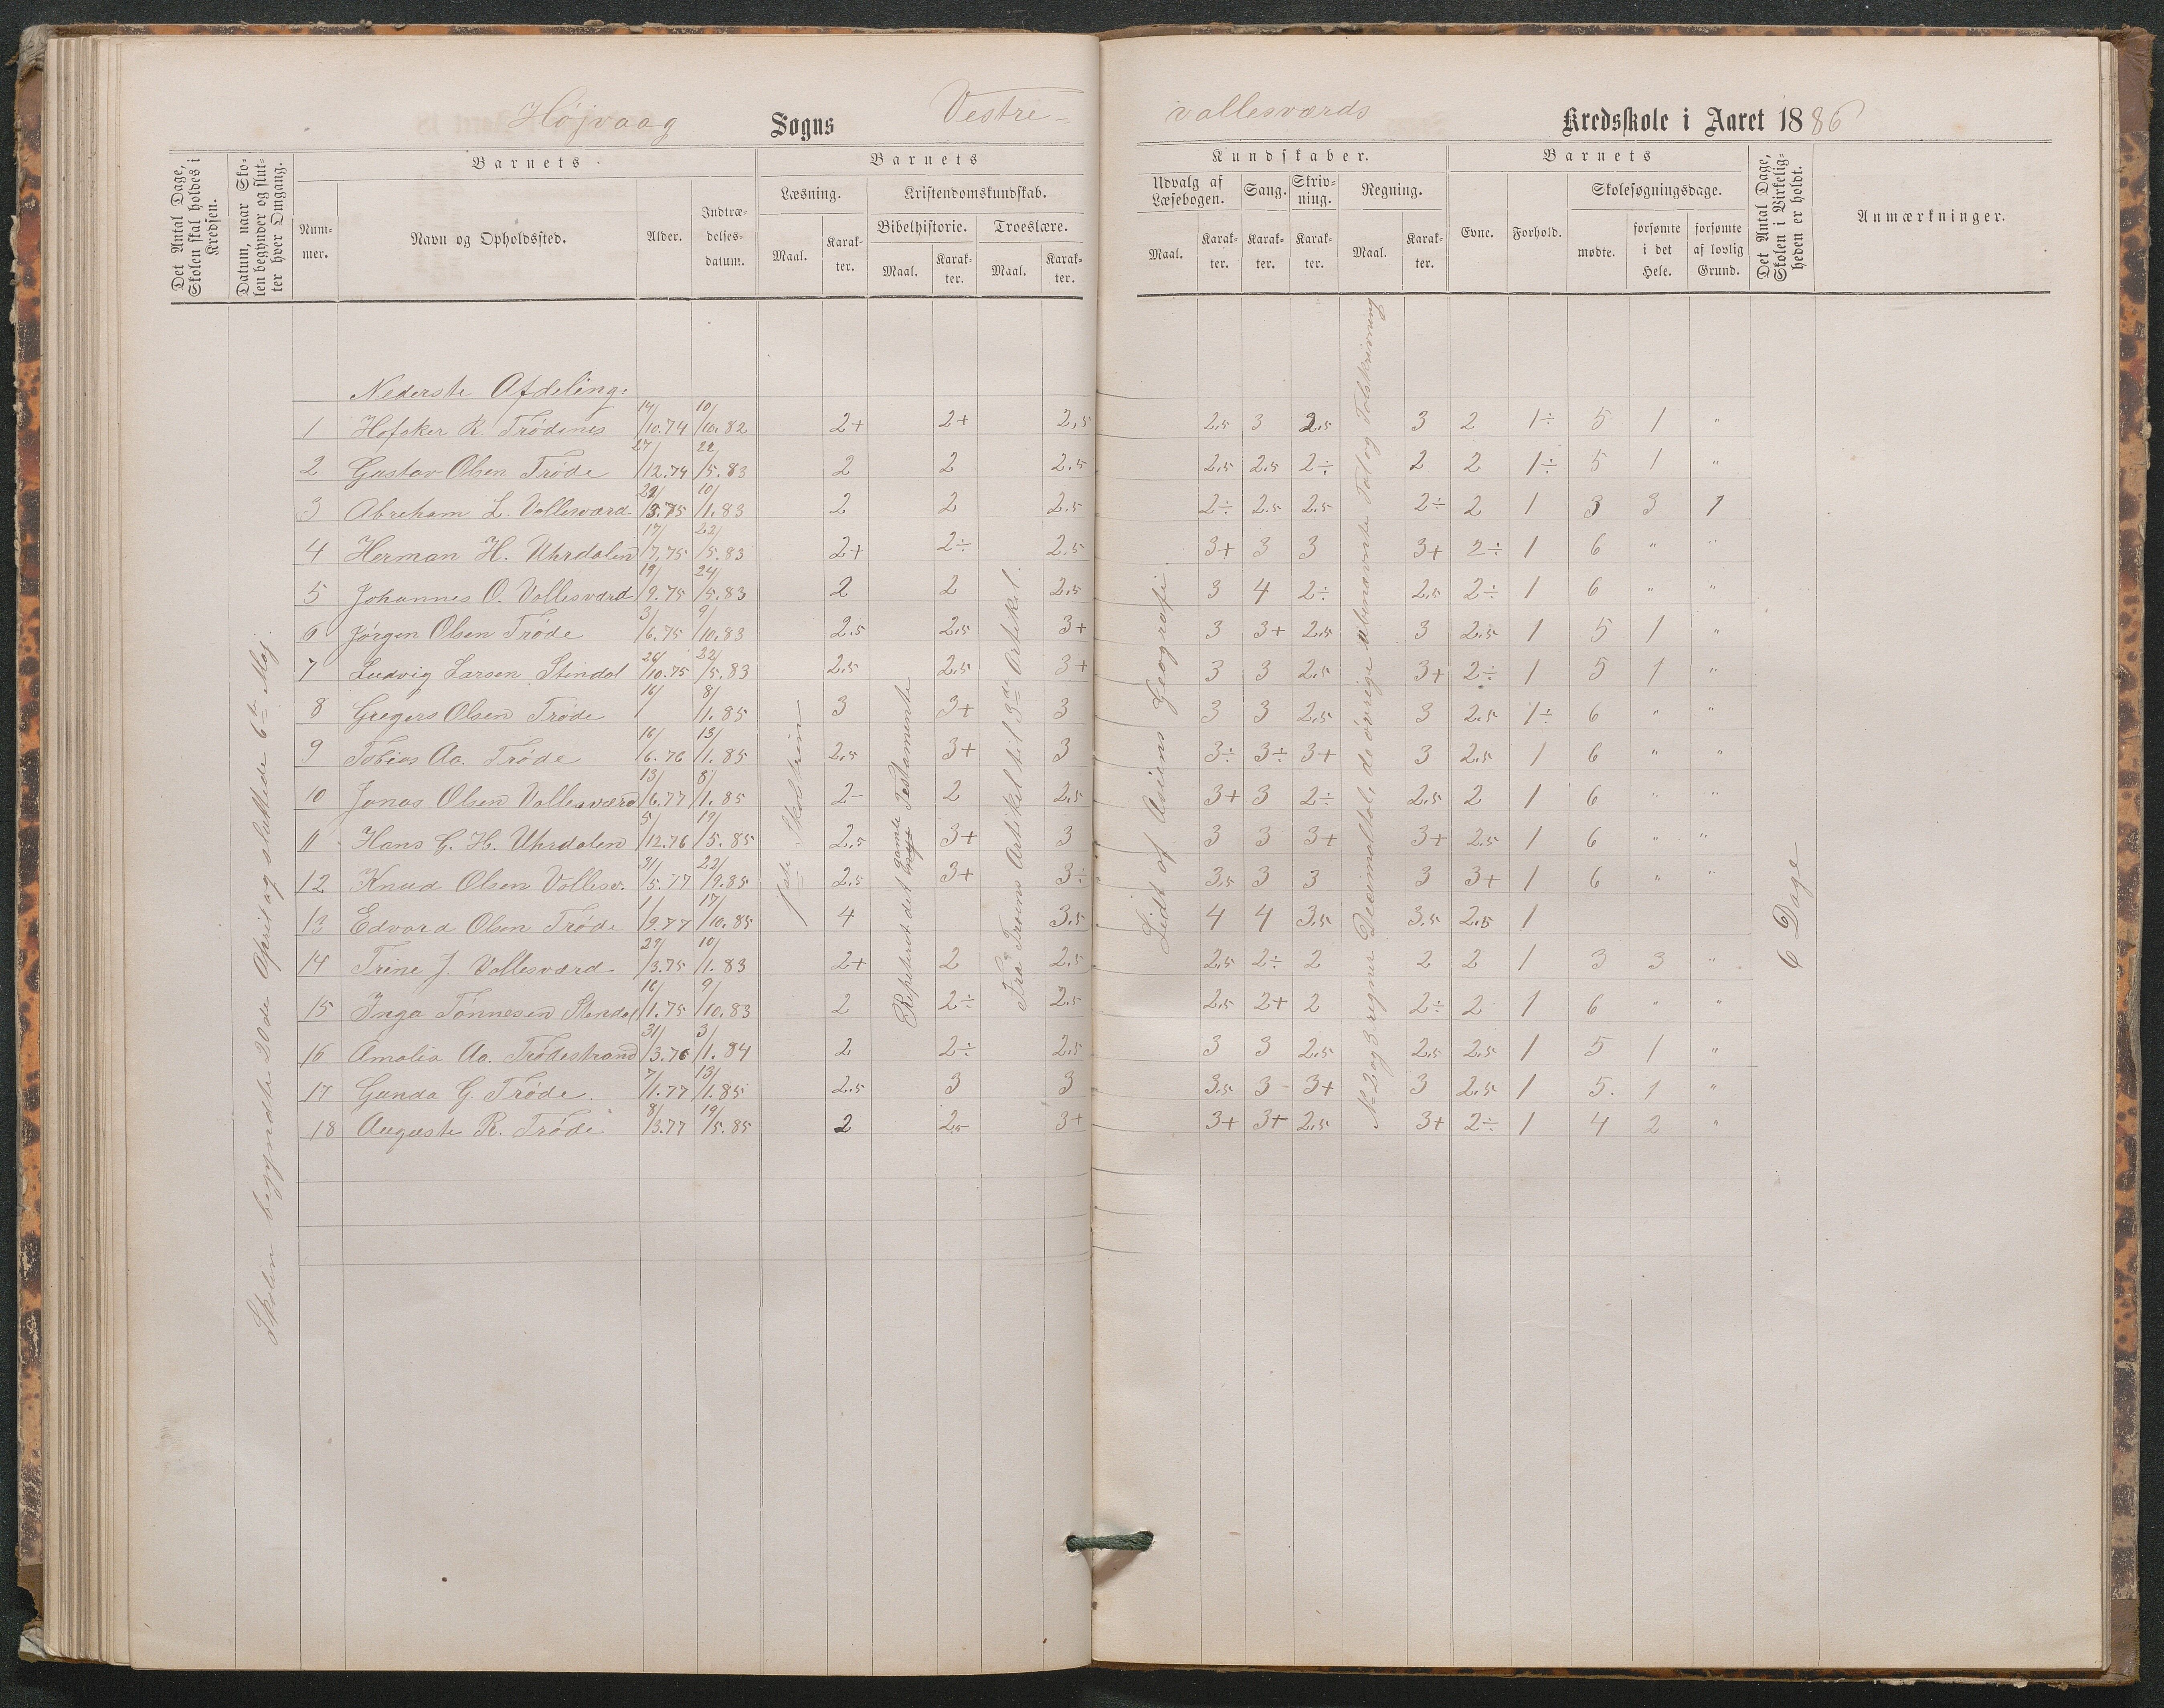 Højvaag Sogns Vestre- Vallesværds Kredsskole i Aaret 1886
Det Antal Dage, Skolen skal holdes i Kredsen.
Datum, naar Skolen begynder og slutter hver Omgang.
Barnets
Nummer.
Navn og Opholdssted.
Alder.
Indtrædelsesdatum.
Barnets
Læsning.
Maal.
Karakter.
Kristendomskundskab.
Bibelhistorie.
Maal.
Karakter.
Troeslære.
Maal.
Karakter.
Kundskaber.
Udvalg af Læsebogen.
Maal.
Karakter.
Sang.
Karakter.
Skrivning.
Karakter.
Regning.
Maal.
Karakter.
Barnets
Evne.
Forhold.
Skolesøgningsdage.
mødte.
forsømte i det Hele.
forsømte af lovlig Grund.
Det Antal Dage, Skolen i Virkeligheden er holdt.
Anmærkninger.
Skolen begyndte 20de April og sluttede 6te Maj.
Nederste Afdeling:
1 Hofaker R. Trødenes 14/10.74 10/10.82 2+ 2+ 2,5 2.5 3 2.5 3 2 1÷ 5 1 "
2 Gustav Olsen Trøde 27/12.74 22/5.83 2 2 2.5 2.5 2.5 2÷ 2 2 1÷ 5 1 "
3 Abreham L. Vallesværd 22/3.75 10/1.83 2 2 2.5 2÷ 2.5 2.5 2÷ 2 1 3 3 1
4 Herman H. Uhrdalen 17/7.75 22/5.83 2+ 2÷ 2.5 3+ 3 3 3+ 2÷ 1 6 " "
5 Johannes O. Vallesværd 19/9.75 24/5.83 2 2 2.5 3 4 2÷ 2.5 2÷ 1 6 " "
6 Jørgen Olsen Trøde 3/6.75 9/10.83 2.5 2.5 3+ 3 3+ 2.5 3 2.5 1 5 1 "
7 Ludvig Larsen Stendal 26/10.75 22/5.83 2.5 2.5 3+ 3 3 2.5 3+ 2÷ 1 5 1 "
8 Gregers Olsen Trøde 16/ 8/1.85 3 3+ 3 3 3 2.5 3 2.5 1÷ 6 " "
9 Tobias Aa. Trøde 16/6.76 13/1.85 2.5 3+ 3 3÷ 3÷ 3+ 3 2.5 1 6 " "
10 Jonas Olsen Vallesværd 13/6.77 8/1.85 2- 2 2.5 3+ 3 2÷ 2.5 2 1 6 " "
11 Hans G. H. Uhrdalen 5/12.76 19/5.85 2.5 3+ 3 3 3 3+ 3+ 2.5 1 6 " "
12 Knud Olsen Vallesv. 31/5.77 22/9.85 2.5 3+ 3÷ 3.5 3 3 3 3+ 1 6 " "
13 Edvard Olsen Trøde 1/9.77 17/10.85 4 3.5 4 4 3.5 3.5 2.5 1
14 Trine J. Vallesværd 29/3.75 10/1.83 2+ 2 2.5 2.5 2÷ 2 2 2 1 3 3 "
15 Inga Tønnesen Stendal 16/1.75 9/10.83 2 2÷ 2.5 2.5 2+ 2 2÷ 2 1 6 " "
16 Amalia Aa. Trødestrand 31/3.76 3/1.84 2 2÷ 2.5 3 3 2.5 2.5 2.5 1 5 1 "
17 Gunda G. Trøde. 7/1.77 13/1.85 2.5 3 3 3.5 3- 3+ 3 2.5 1 5. 1 "
18 Auguste R. Trøde 8/3.77 19/5.85 2 2.5 3+ 3+ 3+ 2.5 3+ 2÷ 1 4 2 "
1ste Skoletrin
Repeteret det nye gamle Testamente
Fra Troens Artikel til 3de Artikel.
Lidt af Asiens Geografi.
No 2 og 3 regner Decimaltal, de øvrige ubenævnte Tal og Talskrivning
6 Dage